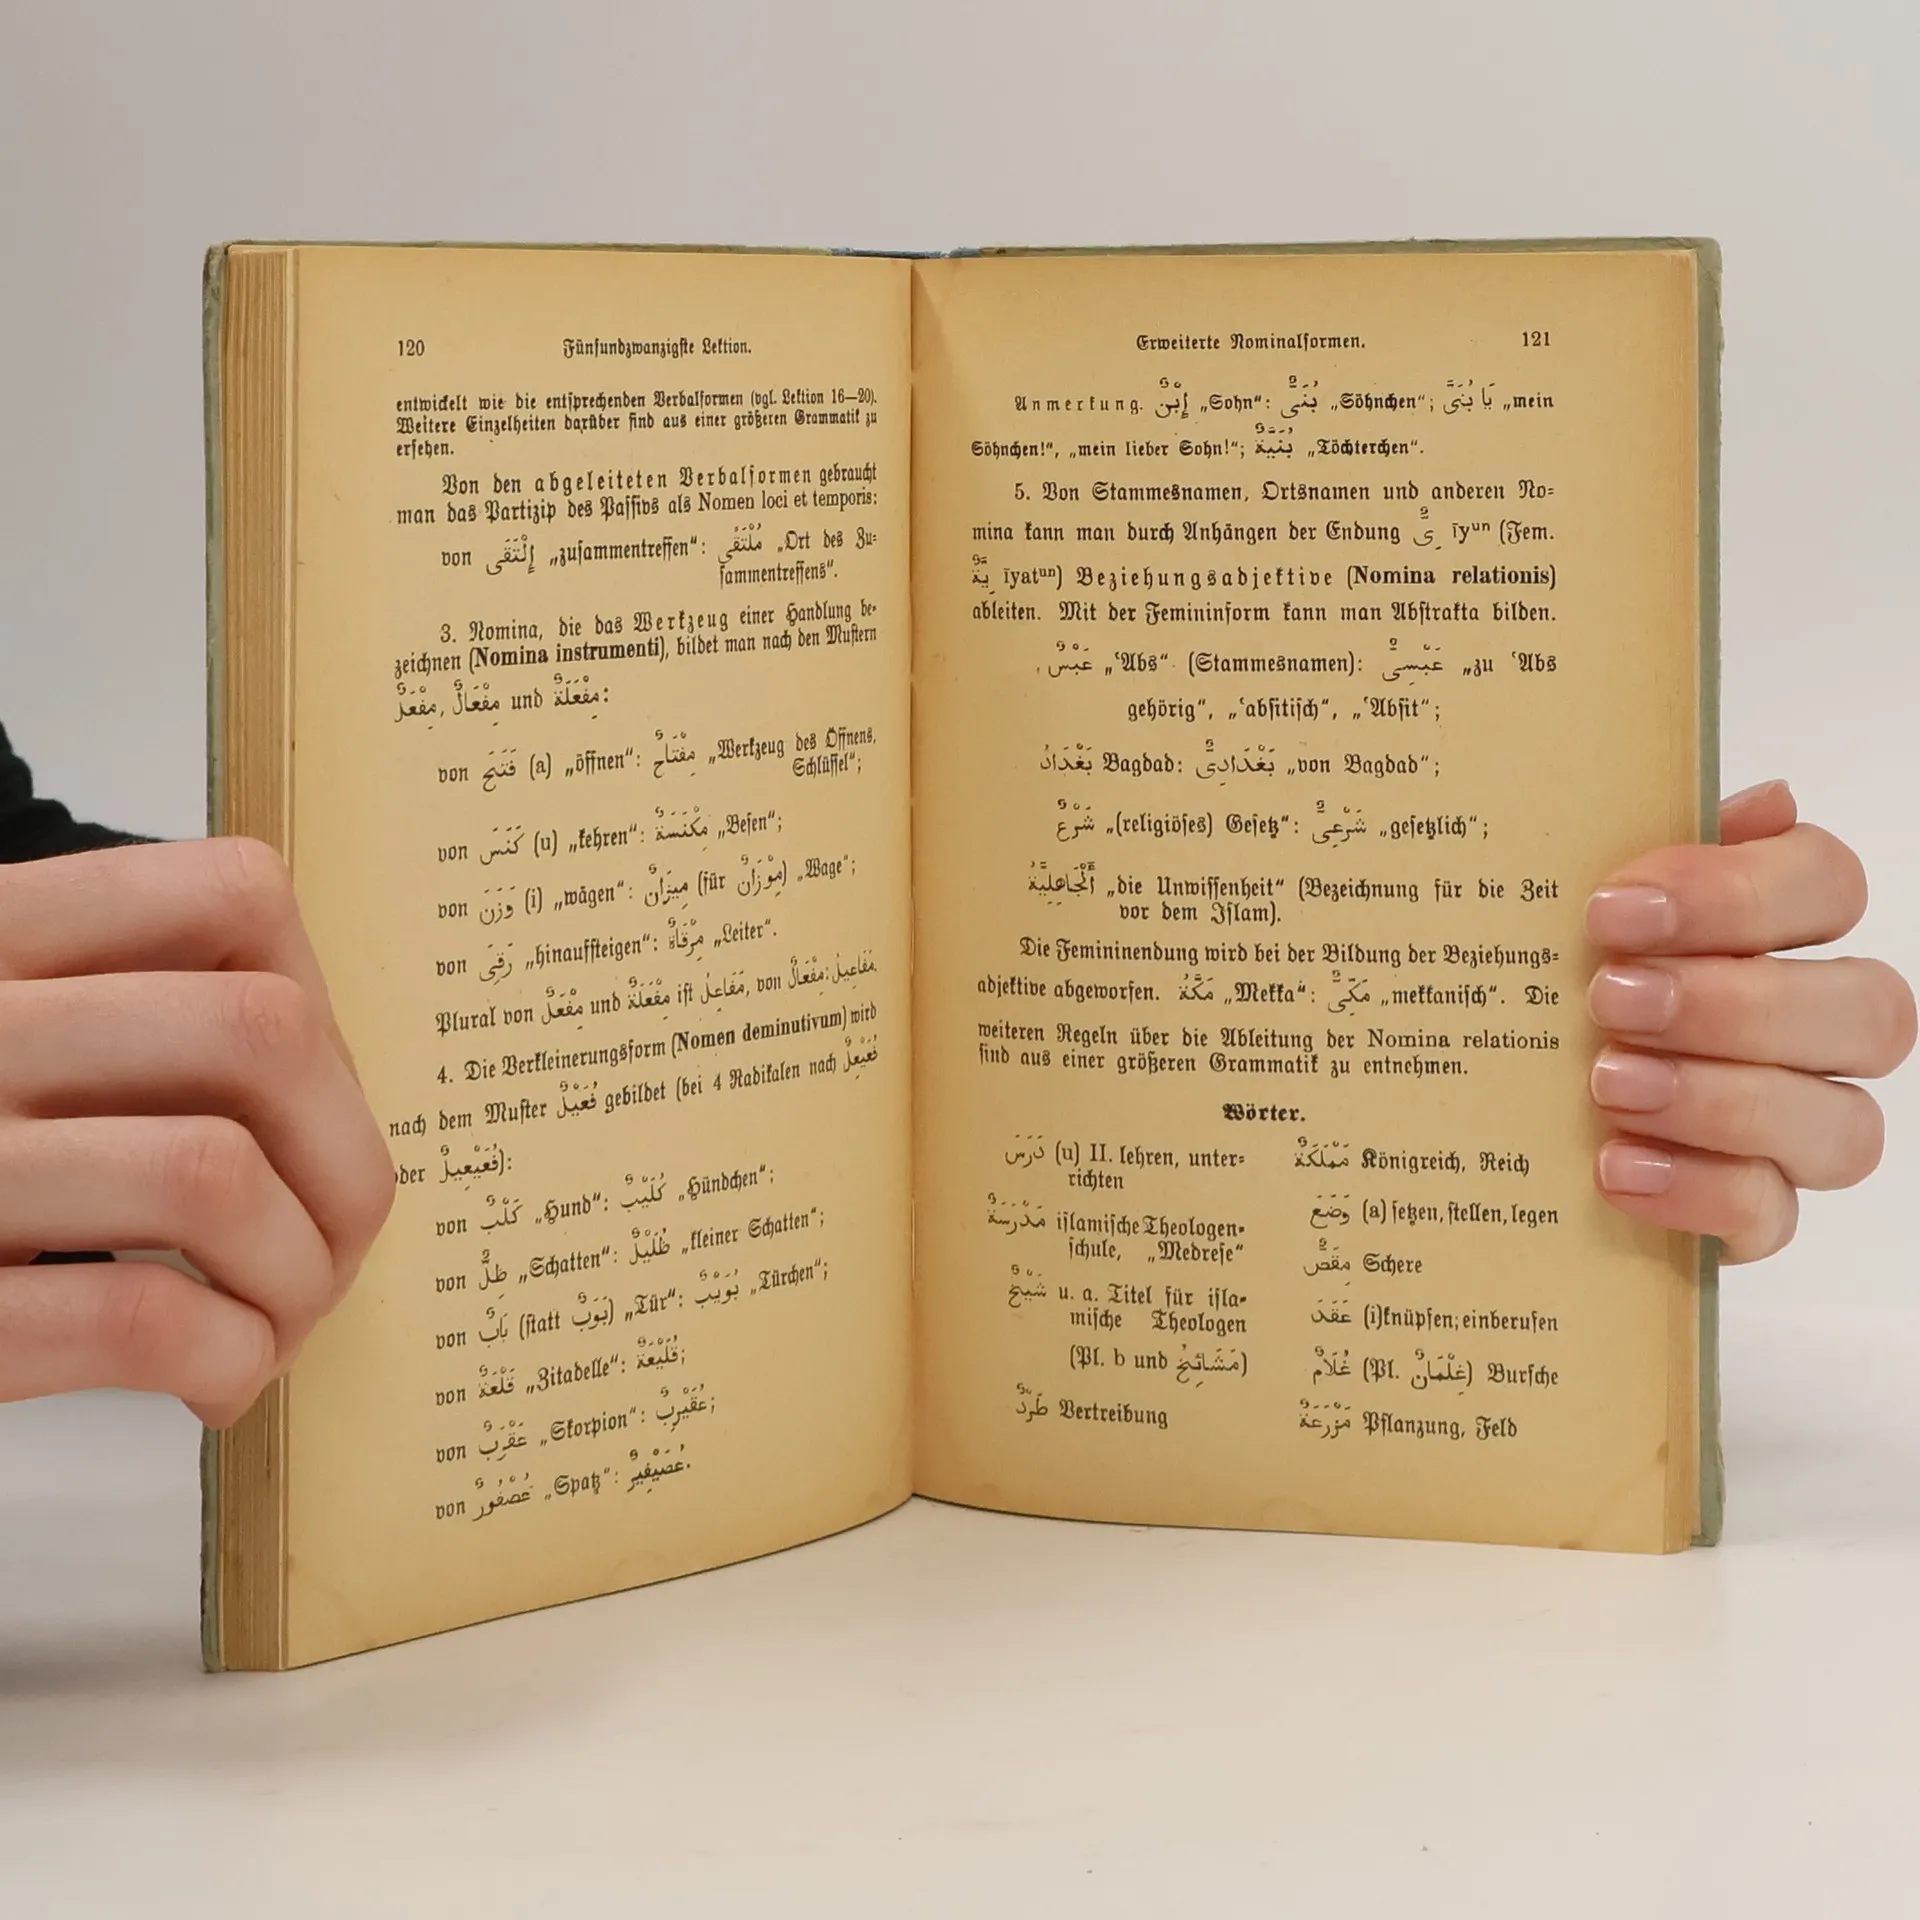 120
Fünfundzwanzigste Lektion.
entwickelt wie die entsprechenden Verbalformen (vgl. Lektion 16—20).
Weitere Einzelheiten darüber sind aus einer größeren Grammatik zu
ersehen.
Von den abgeleiteten Verbalformen gebraucht
man das Partizip des Passivs als Nomen loci et temporis:
von إِلْتَقَى „zusammentreffen“: مُلْتَقًى „Ort des Zu-
sammentreffens“.
3. Nomina, die das Werkzeug einer Handlung be-
zeichnen (Nomina instrumenti), bildet man nach den Mustern
مِفْعَلٌ, مِفْعَالٌ und مِفْعَلَةٌ:
von فَتَحَ (a) „öffnen“: مِفْتَاحٌ „Werkzeug des Öffnens,
Schlüssel“;
von كَنَسَ (u) „kehren“: مِكْنَسَةٌ „Besen“;
von وَزَنَ (i) „wägen“: مِيزَانٌ (für مِوْزَانٌ) „Wage“;
von رَقِىَ „hinaufsteigen“: مِرْقَاةٌ „Leiter“.
Plural von مِفْعَلٌ und مِفْعَلَةٌ ist مَفَاعِلُ, von مِفْعَالٌ: مَفَاعِيلُ.
4. Die Verkleinerungsform (Nomen deminutivum) wird
nach dem Muster فُعَيْلٌ gebildet (bei 4 Radikalen nach فُعَيْعِلٌ
oder فُعَيْعِيلٌ):
von كَلْبٌ „Hund“: كُلَيْبٌ „Hündchen“;
von ظِلٌّ „Schatten“: ظُلَيْلٌ „kleiner Schatten“;
von بَابٌ (statt بَوَبٌ) „Tür“: بُوَيْبٌ „Türchen“;
von قَلْعَةٌ „Zitadelle“: قُلَيْعَةٌ;
von عَقْرَبٌ „Skorpion“: عُقَيْرِبٌ;
von عُصْفُورٌ „Spatz“: عُصَيْفِيرٌ.
Erweiterte Nominalformen.
121
Anmerkung. إِبْنٌ „Sohn“: بُنَىٌّ „Söhnchen“; يَا بُنَىَّ „mein
Söhnchen!“, „mein lieber Sohn!“; بُنَيَّةٌ „Töchterchen“.
5. Von Stammesnamen, Ortsnamen und anderen No-
mina kann man durch Anhängen der Endung ـِىٌّ īyᵘⁿ (Fem.
ـِيَّةٌ īyatᵘⁿ) Beziehungsadjektive (Nomina relationis)
ableiten. Mit der Femininform kann man Abstrakta bilden.
عَبْسٌ „ʿAbs“ (Stammesnamen): عَبْسِىٌّ „zu ʿAbs
gehörig“, „ʿabsitisch“, „ʿAbsit“;
بَغْدَادُ Bagdad: بَغْدَادِىٌّ „von Bagdad“;
شَرْعٌ „(religiöses) Gesetz“: شَرْعِىٌّ „gesetzlich“;
أَلْجَاهِلِيَّةُ „die Unwissenheit“ (Bezeichnung für die Zeit
vor dem Islam).
Die Femininendung wird bei der Bildung der Beziehungs-
adjektive abgeworfen. مَكَّةُ „Mekka“: مَكِّىٌّ „mekkanisch“. Die
weiteren Regeln über die Ableitung der Nomina relationis
sind aus einer größeren Grammatik zu entnehmen.
Wörter.
دَرَسَ (u) II. lehren, unter-
richten
مَدْرَسَةٌ islamische Theologen-
schule, „Medrese“
شَيْخٌ u. a. Titel für isla-
mische Theologen
(Pl. b und مَشَائِخُ)
طَرْدٌ Vertreibung
مَمْلَكَةٌ Königreich, Reich
وَضَعَ (a) setzen, stellen, legen
مِقَصٌّ Schere
عَقَدَ (i) knüpfen; einberufen
غُلَامٌ (Pl. غِلْمَانٌ) Bursche
مَزْرَعَةٌ Pflanzung, Feld